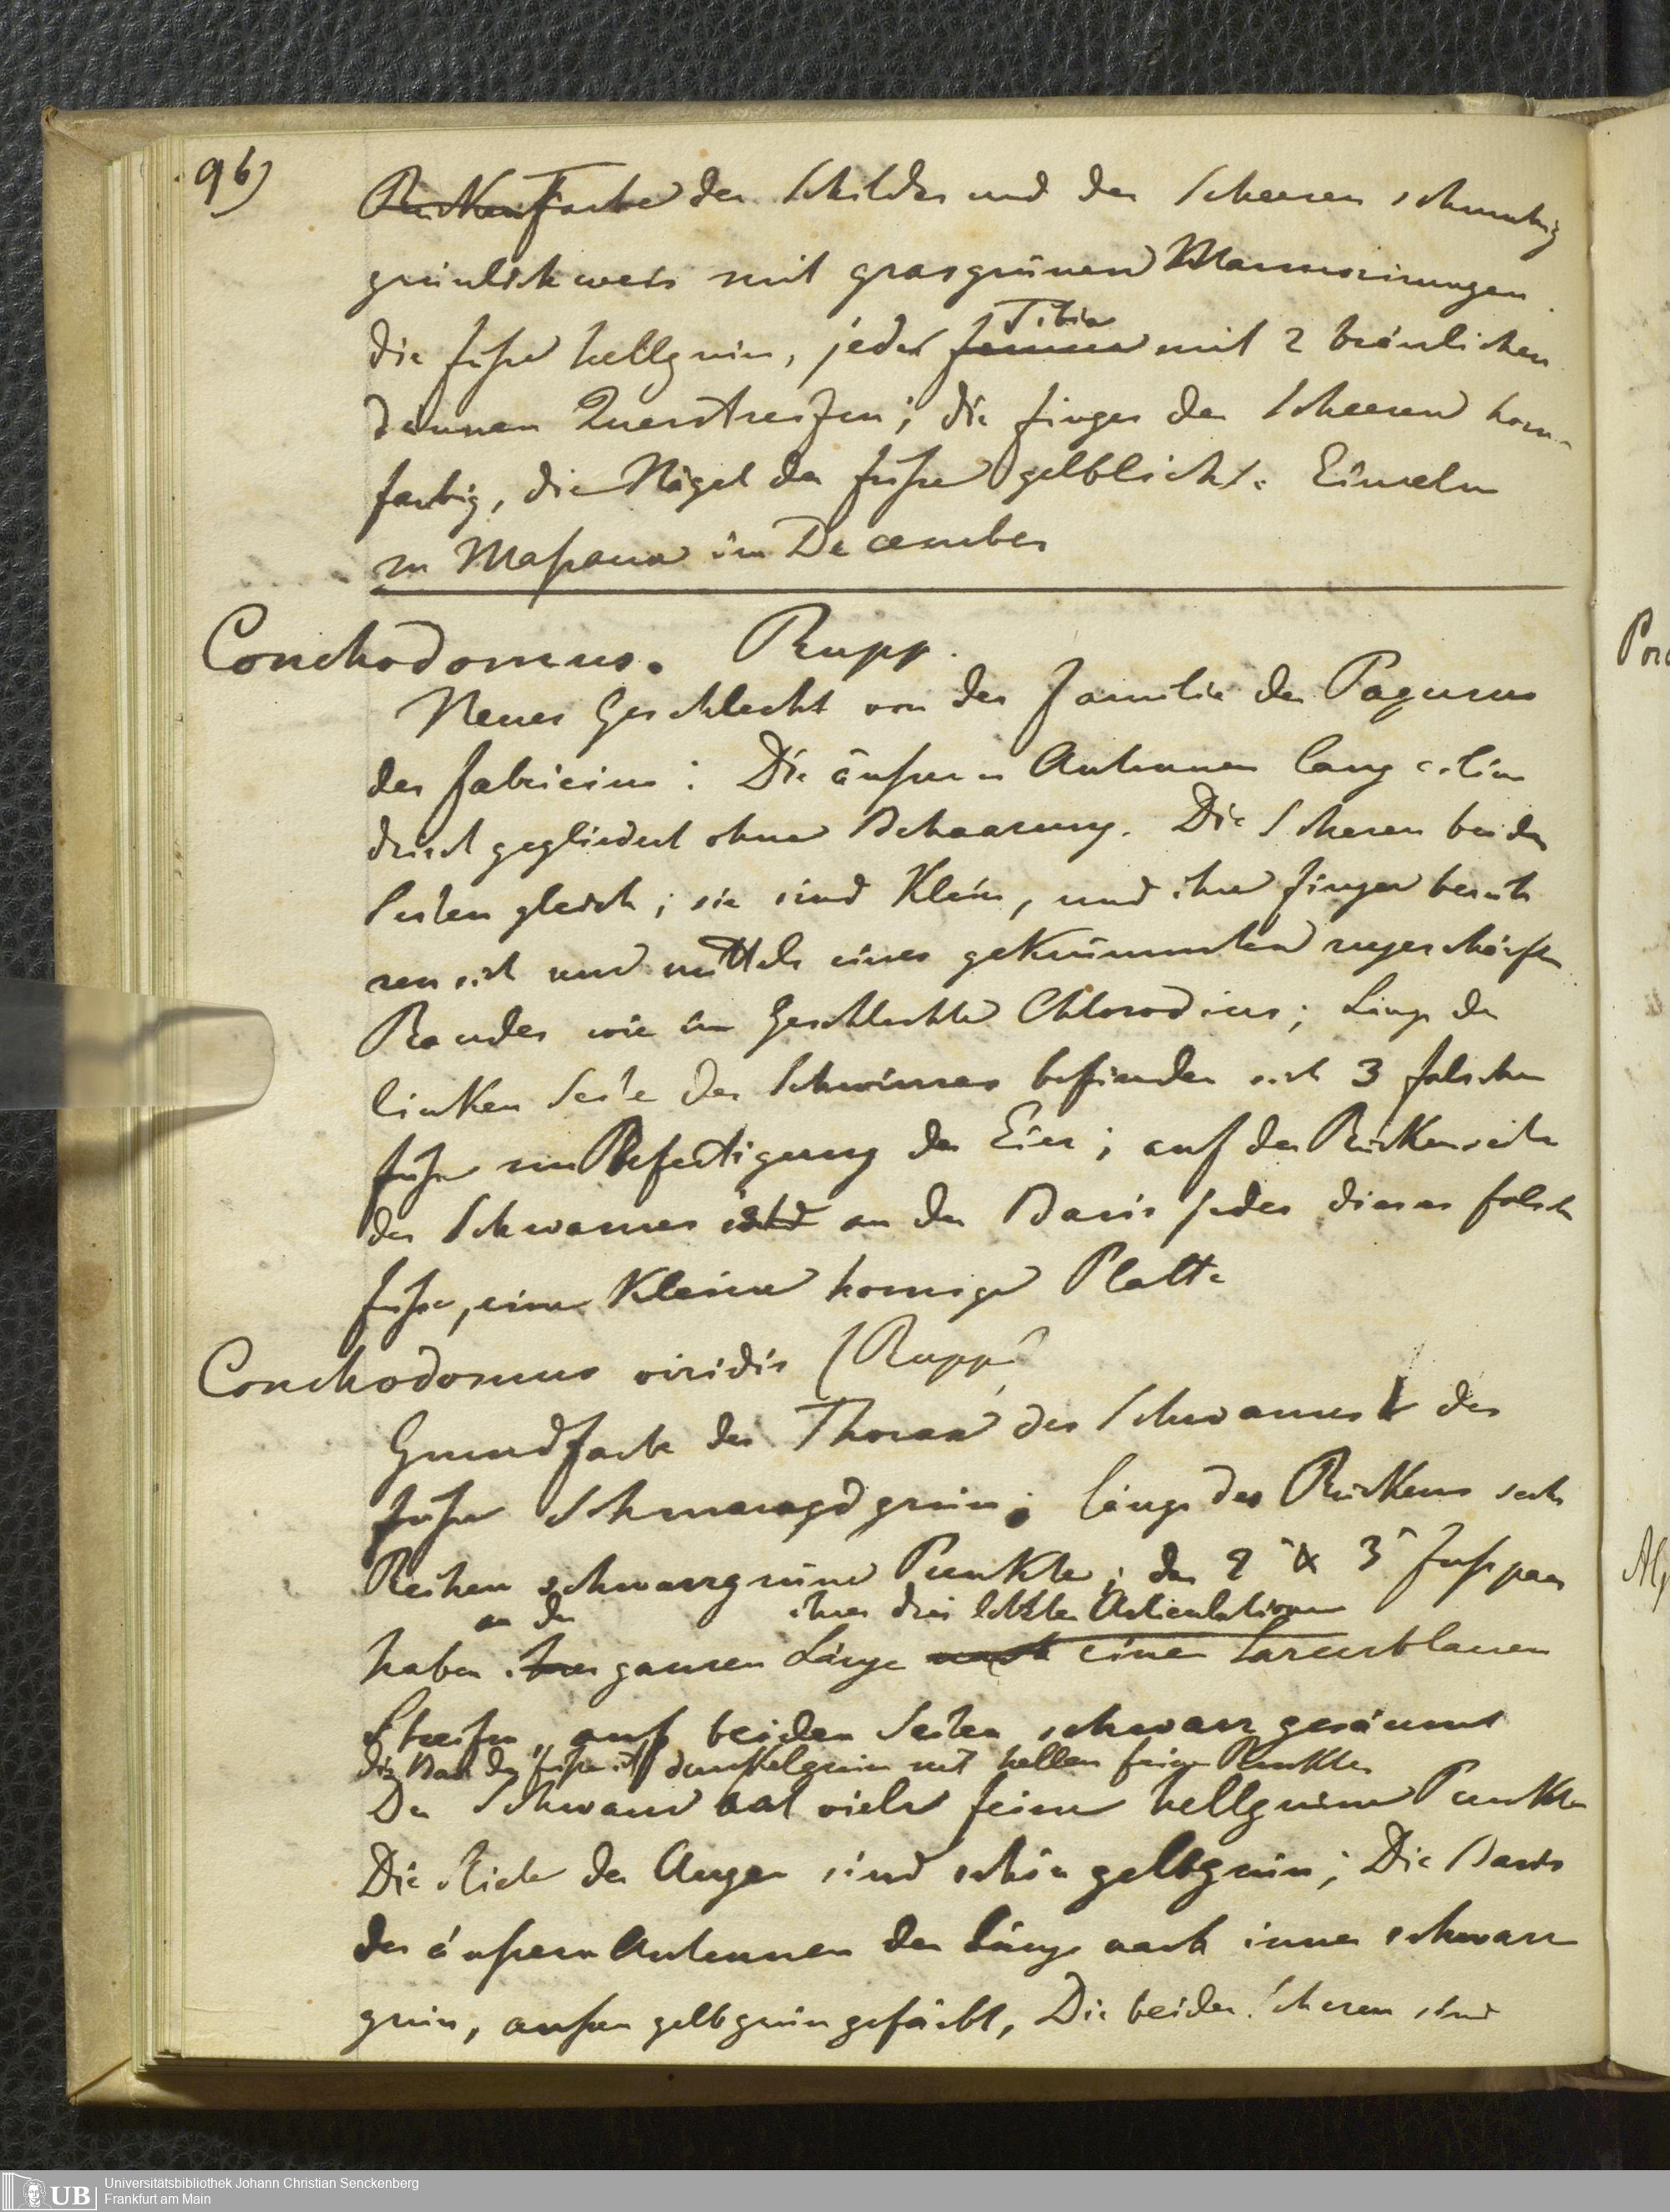 96)
Rücken Farbe des Schildes und der Scheeren schmutzig
grünlichweis mit grasgrünen Marmorirungen
Tibia
die Füße hellgrün, jedes femur mit 2 bräunlichen
dünnen Querstreifen; die Finger der Scheeren horn-
farbig, die Nägel der Füße gelblicht. Einzeln
zu Maßaua im December
Conchodomus. Rupp.
Neues Geschlecht von der Familie der Pagurus
des Fabricius: Die äußern Antennen lang cilin
drisch gegliedert ohne Behaarung. Die Scheren beider
Seiten gleich; sie sind Klein, und ihre Finger berüh
ren sich nur mittels eines gekrümmten zugeschärften
Randes wie im Geschlechte Chlorodius; Längs der
linken Seite des Schwanzes befinden sich 3 falschen
Füße zur Befestigung der Eier; auf der Rückenseite
des Schwanzes ist an der Basis jedes dieser falsch
Füße, eine Kleine hornige Platte
Conchodomus viridis (Rupp)
Grundfarbe des Thorax des Schwanzes der
Füße Schmaragdgrün; längs des Rückens sechs
Reihen schwarzgrüne Punkte; der 2 & 3 Fußpaar
an der ihrer drei letzten Articulationen
haben ihrer ganzen Länge nach einen Lazurblauen
Streifen, auf beiden Seiten schwarz gesäumt
die Basis der Füße ist dunkelgrün mit hellen feinen Punkten
Der Schwanz hat viele feine hellgrüne Punkte
Die Stiele der Augen sind schön gelbgrün; Die Basis
der äußern Antennen der Länge nach innen schwarz
grün, außen gelbgrün gefärbt, Die beiden Scheren sind
Universitätsbibliothek Johann Christian Senckenberg
Frankfurt am Main
UB